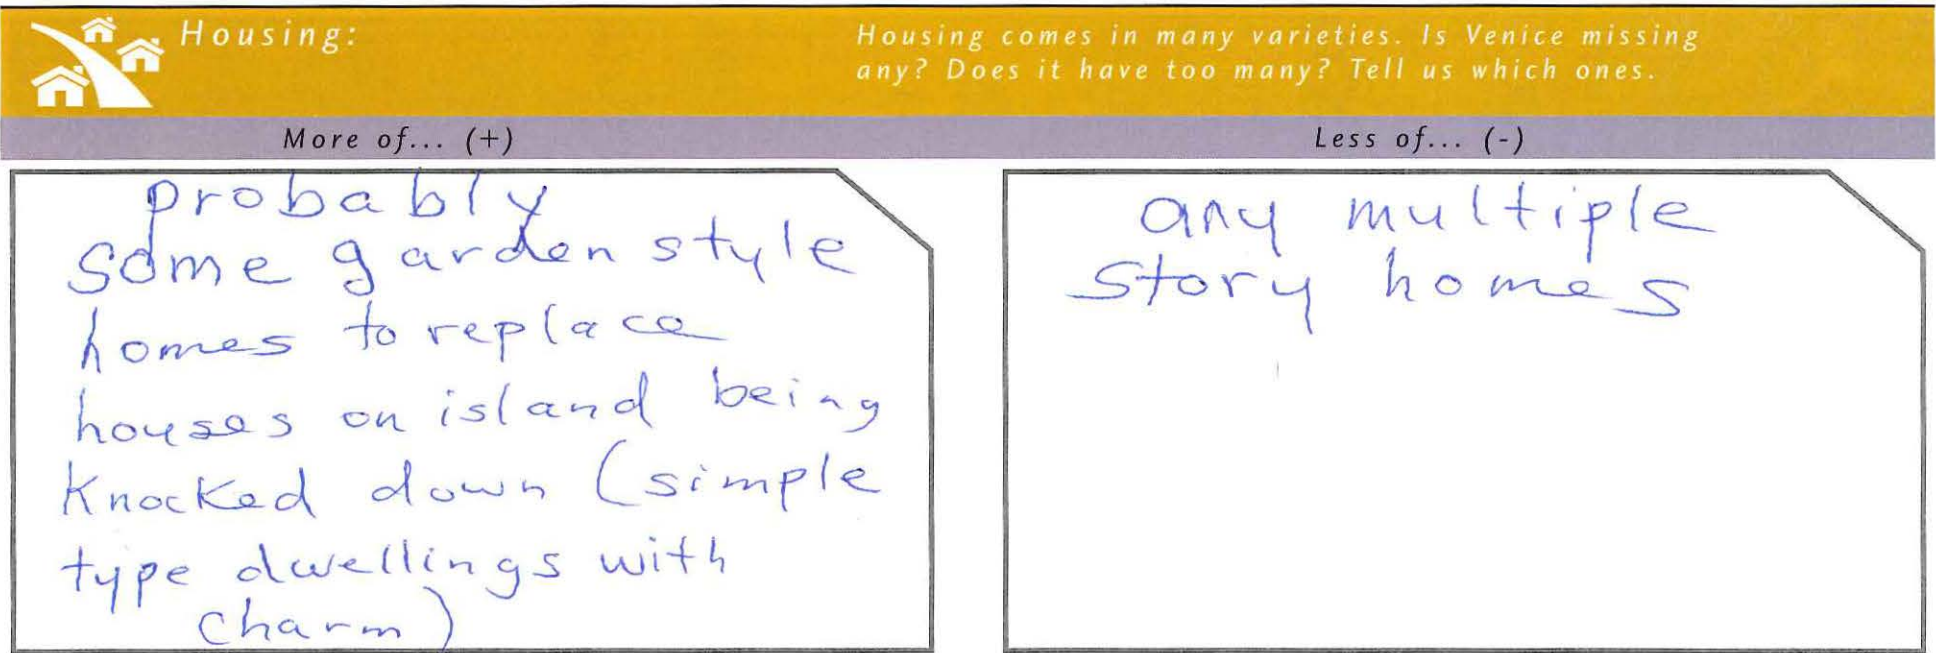 Housing:
Housing comes in many varieties. Is Venice missing
any? Does it have too many? Tell us which ones.
More of... (+)
Less of... (-)
probably
some garden style
homes to replace
houses on island being
knocked down (simple
type dwellings with
charm)
any multiple
story homes